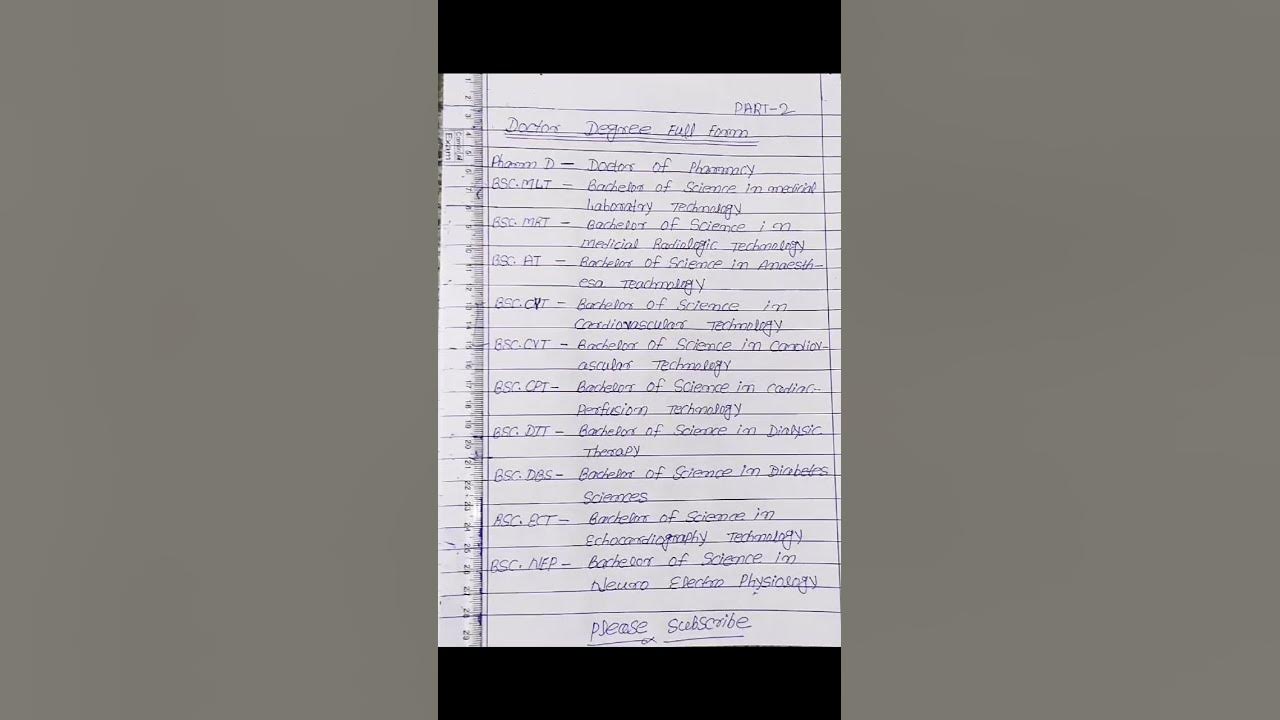 PART-2
Doctor Degree Full Form
Pharm D - Doctor of Pharmacy
BSC.MLT - Bachelor of Science in medicial
Laboratry Technology
BSC.MRT - Bachelor of Science in
medicial Radiologic Technology
BSC.AT - Bachelor of Science in Anaesth-
esa Teachnology
BSC.CVT - Bachelor of Science in
Cardiovascular Technology
BSC.CVT - Bachelor of Science in Cardiov-
ascular Technology
BSC.CPT - Bachelor of Science in Cadiac-
Perfusion Technology
BSC.DTT - Bachelor of Science in Dialysic
Therapy
BSC.DBS - Bachelor of Science in Diabetes
Sciences
BSC.ECT - Bachelor of Science in
Echocardiography Technology
BSC.NEP - Bachelor of Science in
Neuro Electro Physiology
Please Subscribe